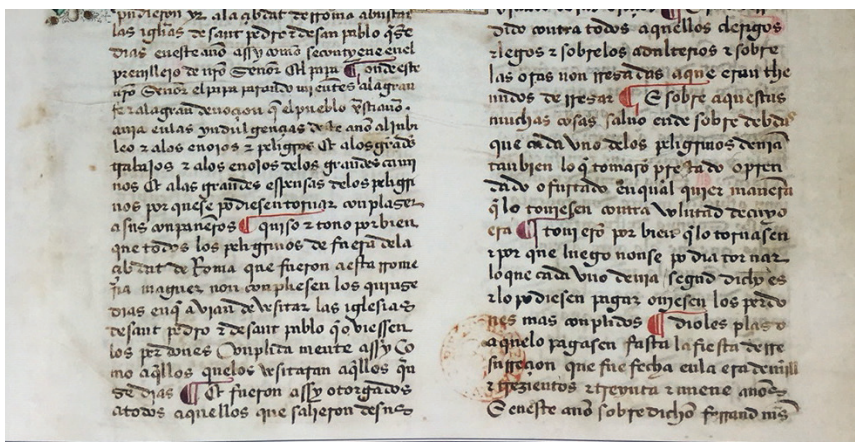 pudieron yr ala çibdat de rroma a buscar
las iglias de sant pedro τ de sant pablo q̃se
dias en este año assy como se contyene en el
preuillejo de nr̃o Señor El papa ¶ onde este
nr̃o Señor el papa parando mientes ala gran
fe τ ala gran deuoçion q̃ el pueblo xp̃stiano
auia en las yndulgençias deste año al iubi
leo τ alos enoios τ peligros Et alos grãdes
trabajos τ alos enoios delos grandes cami
nos Et alas grandes espensas delos peligri
nos por que se podiesen tornar con plaser
a sus conpañeros ¶ quiso τ touo por bien
que todos los peligrinos de fuera dela
çibdat de Roma que fueron a esta rrome
ria maguer non conpliesen los quinse
dias en q̃ auian de vesitar las iglesias
de sant pedro τ de sant pablo q̃ ouiessen
los perdones Conplida mente assy Co
mo aq̃llos quelos vesitaran aq̃llos qui
se dias ¶ Et fueron assy otorgados
a todos aquellos que salieron de sus
dido contra todos aquellos clerigos
τ legos τ sobrelos adulterios τ sobre
las oras non rresadas aque eran the
nudos de rresar ¶ E sobre aquestas
muchas cosas saluo ende sobre debda
que cada vno delos peligrinos deuia
tanbien lo que tomarõ prestado o pren
dado o furtado en qual quier manera
q̃ lo touiesen contra volũtad de cuyo
era ¶ touierõ por bien q̃ lo tornasen
τ por que luego non se podia tornar
lo que cada vno deuia segũd dicho es
τ lo podiesen pagar ouiesen los perdo
nes mas conplidos ¶ dioles plaso
a quelo pagasen fasta la fiesta de rre
surreçion que fue fecha en la era de mill
τ trezientos τ treynta τ nueue años
E en este año sobredicho ferrand mr̃s